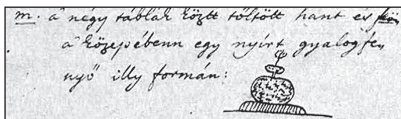 m. a négy táblák között töltött hant és
a közepébenn egy nyírt gyalogfe,
nyő illy formán: